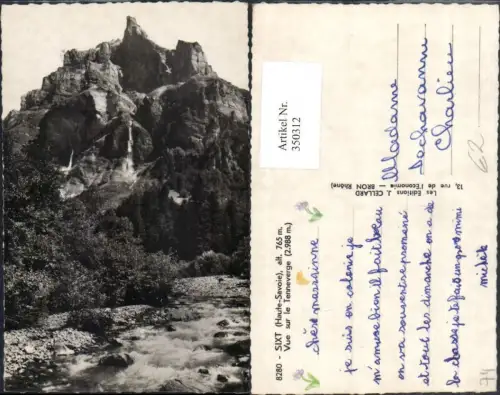 Artikel Nr.
350312
Madame
Dechavanne
Charlieu
62
Les Editions J. CELLARD
13, rue de l'Economie — BRON (Rhône)
8280 - SIXT (Haute-Savoie), alt. 765 m.
Vue sur le Tenneverge (2.988 m.)
chère
je suis en colonie je
m'amuse bien il fait beau
on va souvent se promené
et tout les dimanche on a de
la
michele
74